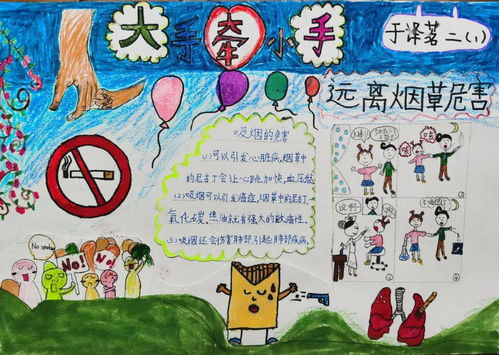 大手牵小手
于泽茗 二(1)
远离烟草危害
吸烟的危害
(1)可以引发心脏病,烟草中
的尼古丁会让心跳加快,血压
(2)吸烟可以引发癌症,烟草中的尼古丁,
氧化碳,焦油就有强大的致癌性.
(3)吸烟还会伤害肺部,引起肺部疾病.
No smoking
No!
No!